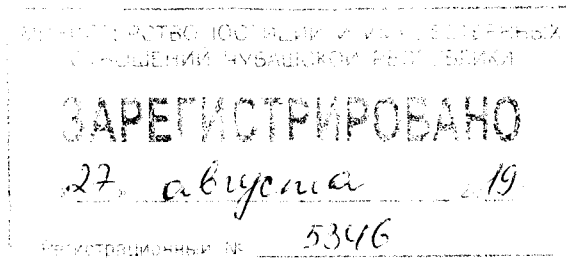 МИНИСТЕРСТВО ЮСТИЦИИ И ИМУЩЕСТВЕННЫХ
ОТНОШЕНИЙ ЧУВАШСКОЙ РЕСПУБЛИКИ
ЗАРЕГИСТРИРОВАНО
27 августа 19
Регистрационный № 5346